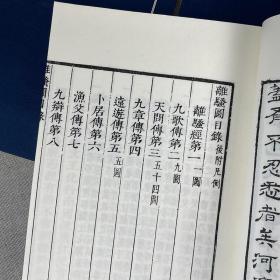 離騷圖目錄 後附凡例
離騷經第一 一圖
九歌傳第二 九圖
天問傳第三 五十四圖
九章傳第四
遠遊傳第五 五圖
卜居傳第六
漁父傳第七
九辯傳第八
離騷圖 目錄
蓋有不忍愁者矣河